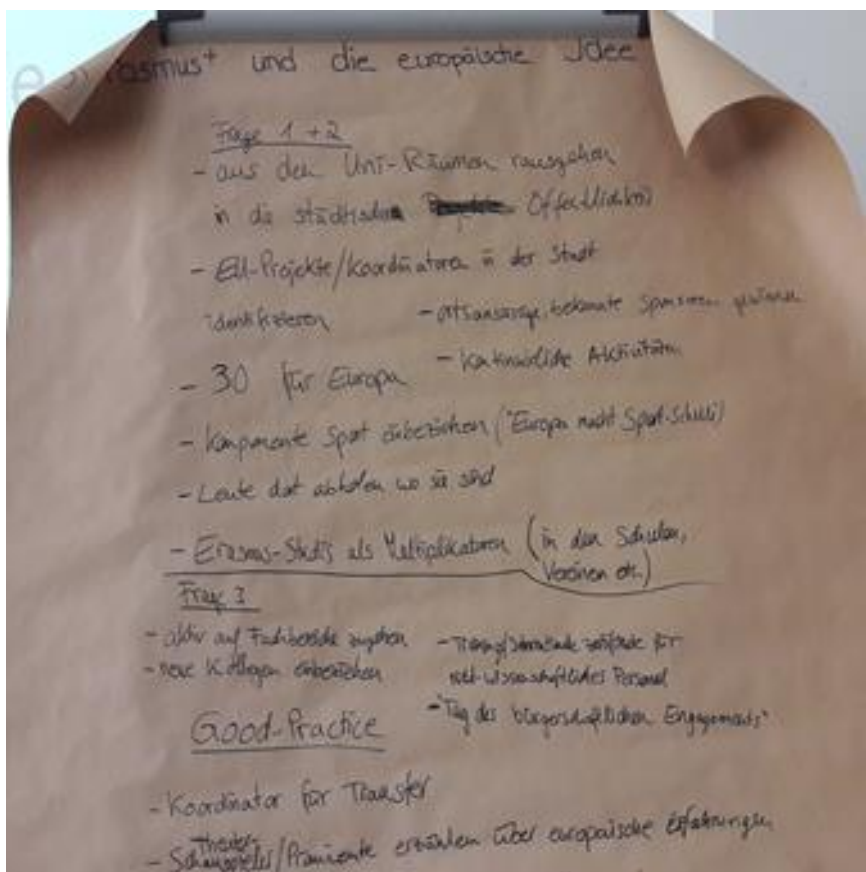 Erasmus+ und die europäische Idee
Frage 1+2
- aus den Uni-Räumen rausgehen
in die städtische Öffentlichkeit
- EU-Projekte/Koordinatoren in der Stadt
identifizieren
- ortsansässige, bekannte Sponsoren gewinnen
- 30 für Europa
- Kontinuierliche Aktivitäten
- Komponente Sport einbeziehen ("Europa macht Sport-Schule")
- Leute dort abholen wo sie sind
- Erasmus-Studis als Multiplikatoren (in den Schulen,
Vereinen etc.)
Frage 3
- aktiv auf Fachbereiche zugehen
- neue Kollegen einbeziehen
- Training/ für
nicht-wissenschaftliches Personal
- "Tag des bürgerschaftlichen Engagements"
Good-Practice
- Koordinator für Transfer
Theater-
- Schauspieler/Prominente erzählen über europäische Erfahrungen